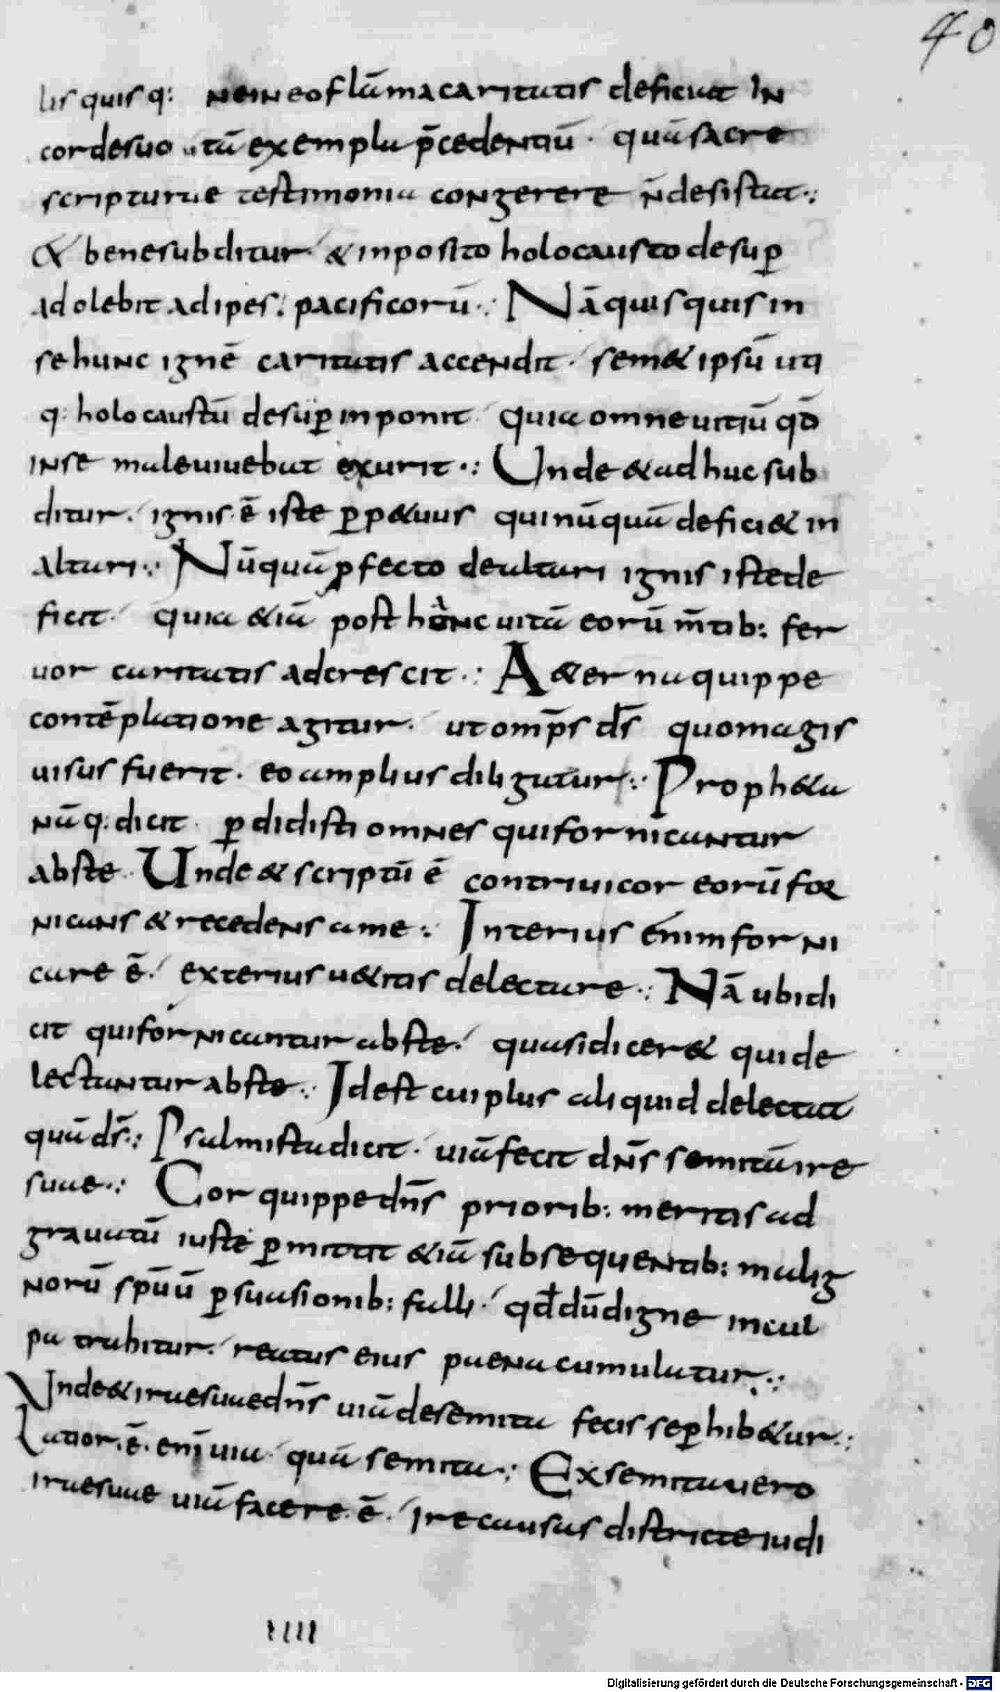 40
lis quisq: ne in eo flāma caritatis deficiat In
corde suo tā exempla p̄cedentiū · quā sacre
scripturae testimonia congerere n̄ desistat ·:
& bene subditur · & inposito holocausto desup̄
adolebit adipes · pacificorū ·: Nā quisquis in
se hunc ignē caritatis accendit · sem& ipsū uti
q: holocaustū desup̄ inponit · quia omne uitiū qđ
in se male uiuebat exurit ·: Unde & adhuc sub
ditur · ignis · ē iste ꝑp&uus qui nūquā defici& in
altari ·: Nūquā ꝓfecto de altari ignis iste de
ficit · quia &iā post hanc uitā eorū m̄tib: fer
uor caritatis adcrescit ·: A&erna quippe
contēplatione agitur · ut omp̄s d̄s quo magis
uisus fuerit · eo amplius diligatur ·: Proph&a
nāq: dicit · ꝑdidisti omnes qui fornicantur
abs te · Unde & scriptū ē contriui cor eorū for
nicans & recedens a me ·: Interius enīm forni
care ē · exterius uetitis delectare ·: Nā ubi di
cit qui fornicantur abs te · quasi dicer& qui de
lectantur abs te ·: Id est cui plus aliquid delectat
quā d̄s ·: Psalmista dicit · uiā fecit dn̄s semitā ire
suae ·: Cor quippe dn̄s priorib: meritis ad
grauatū iuste ꝑmittit &iā subsequentib: malig
norū sp̄uū ꝑsuasionib: falli · qđ dū digne in cul
pa trahitur · reatus eius paena cumulatur ·:
Unde & irae suae dn̄s uiā de semita fecisse ꝑhib&ur ·:
Latior · ē · enī uia · quā semita ·: Ex semita uero
irae suae uiā facere · ē · irae causas districte iudi
IIII
Digitalisierung gefördert durch die Deutsche Forschungsgemeinschaft - DFG